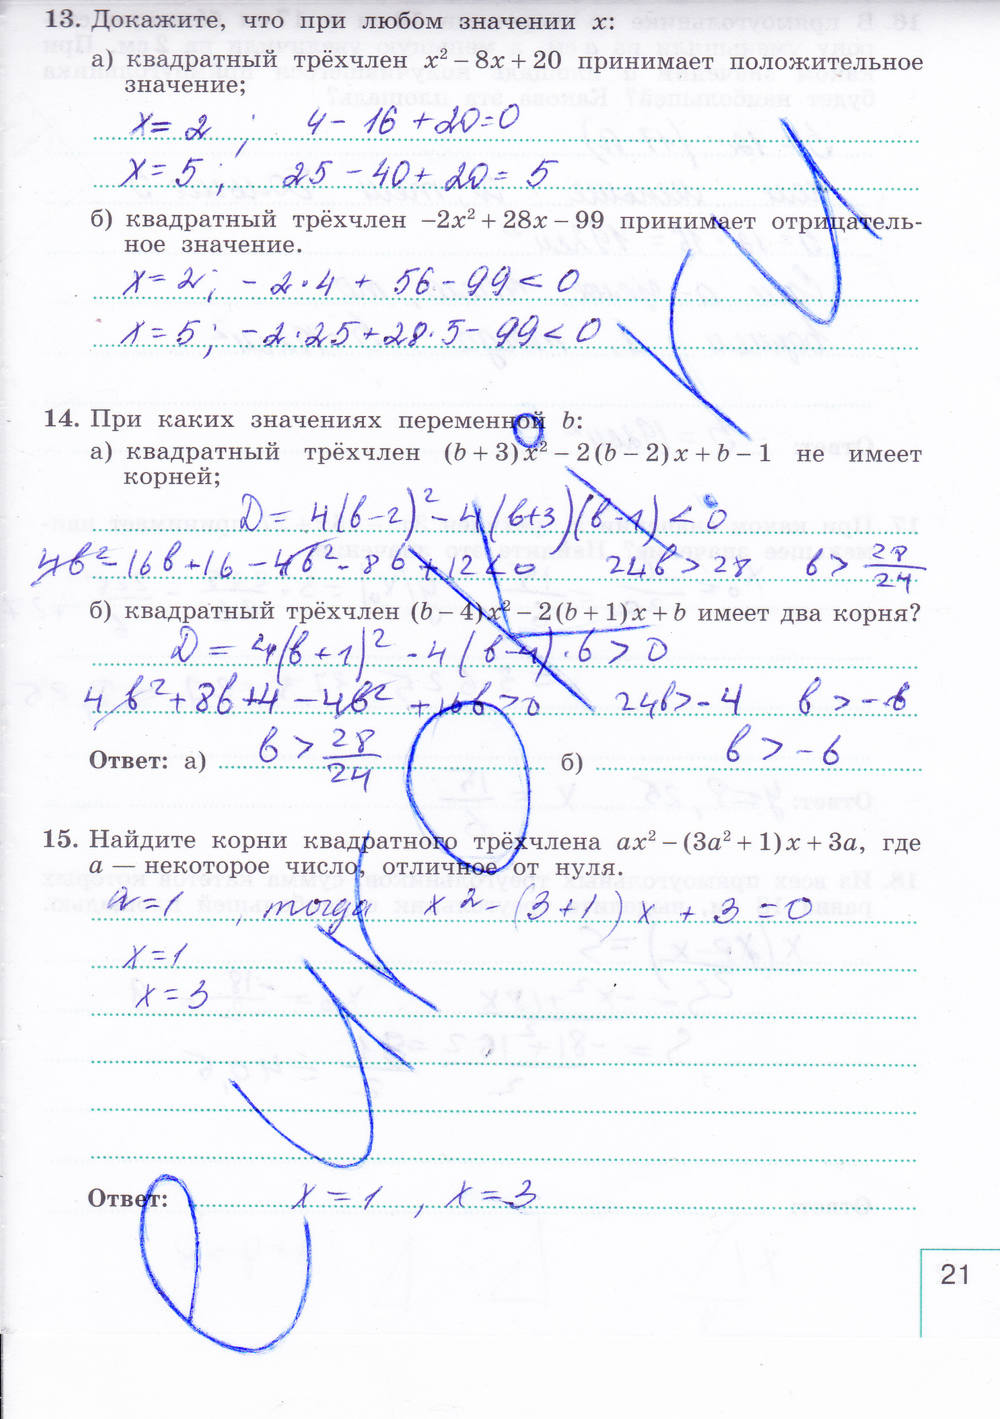 13. Докажите, что при любом значении x:
а) квадратный трёхчлен x² – 8x + 20 принимает положительное
значение;
x = 2 ; 4 – 16 + 20 = 0
x = 5 ; 25 – 40 + 20 = 5
б) квадратный трёхчлен –2x² + 28x – 99 принимает отрицатель-
ное значение.
x = 2; – 2·4 + 56 – 99 < 0
x = 5; – 2·25 + 28·5 – 99 < 0
14. При каких значениях переменной b:
а) квадратный трёхчлен (b + 3)x² – 2(b – 2)x + b – 1 не имеет
корней;
D = 4(b–2)² – 4(b+3)(b–1) < 0
4b² – 16b + 16 – 4b² – 8b + 12 < 0 24b > 28 b > 28/24
б) квадратный трёхчлен (b – 4)x² – 2(b + 1)x + b имеет два корня?
D = 4(b+1)² – 4(b–4)·b > 0
4b² + 8b + 4 – 4b² + 16b > 0 24b > – 4 b > – 6
Ответ: а) b > 28/24 б) b > – 6
15. Найдите корни квадратного трёхчлена ax² – (3a² + 1)x + 3a, где
a — некоторое число, отличное от нуля.
a = 1 , тогда x² – (3+1)x + 3 = 0
x = 1
x = 3
Ответ: x = 1 , x = 3
21